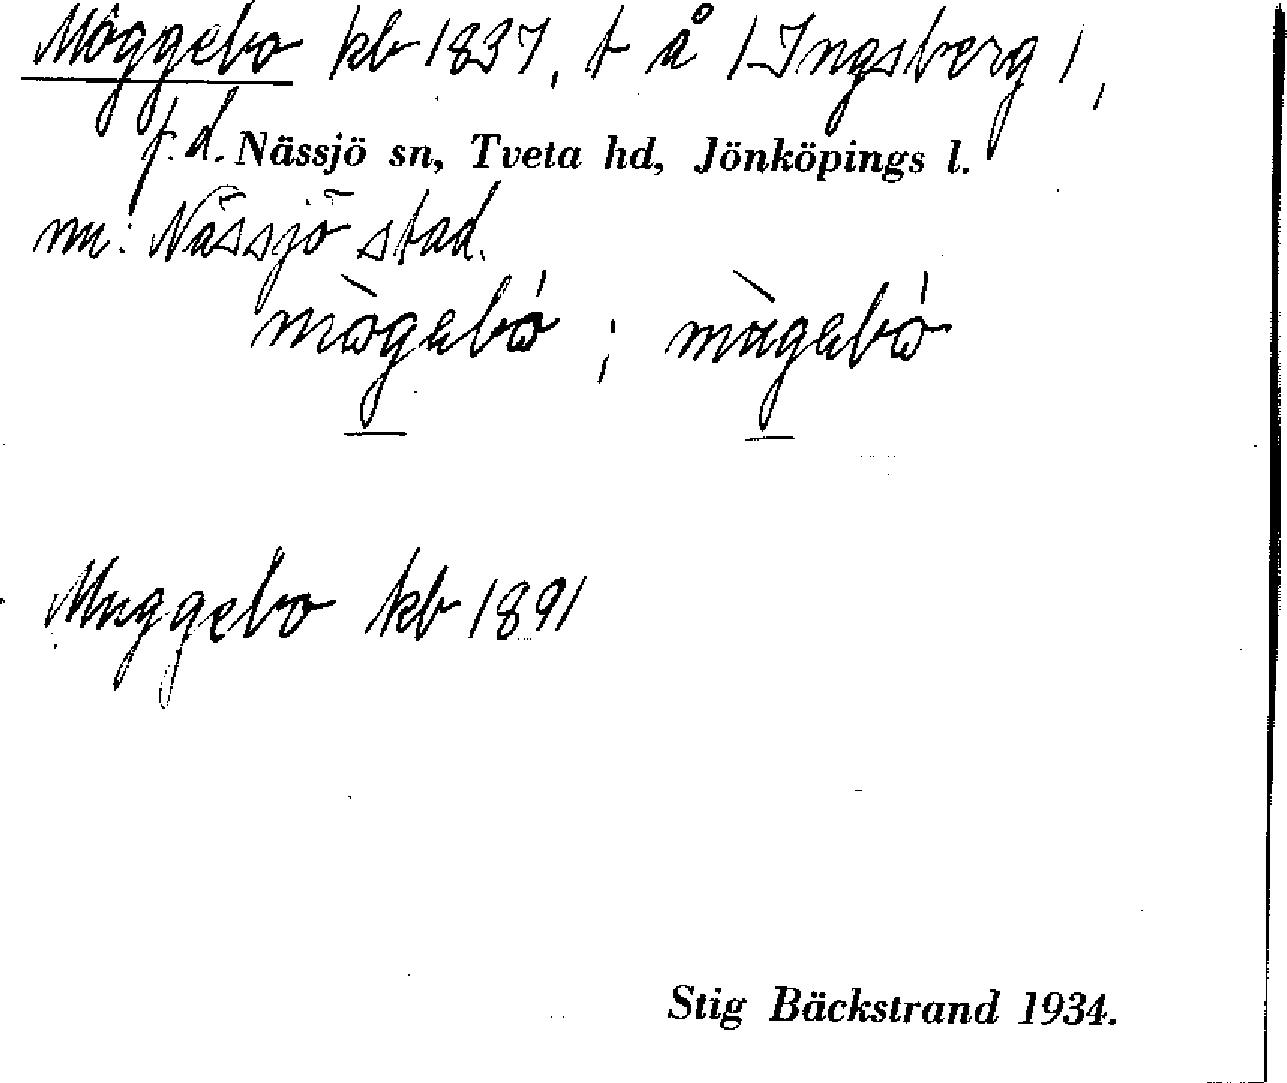 Möggebo kb 1837, t å /Ingsberg/,
f.d. Nässjö sn, Tveta hd, Jönköpings l.
nu: Nässjö stad.
Muggebo kb 1891
Stig Bäckstrand 1934.